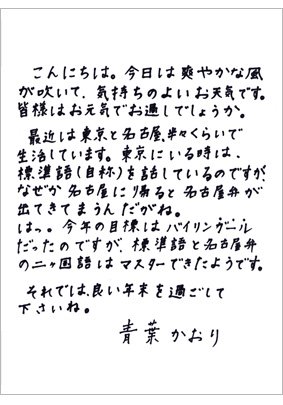 こんにちは。今日は爽やかな風
が吹いて、気持ちのよいお天気です。
皆様はお元気でお過しでしょうか。
最近は東京と名古屋、半々くらいで
生活しています。東京にいる時は、
標準語(自称)を話しているのですが、
なぜか名古屋に帰ると名古屋弁が
出てきてまうんだがね。
はっ。今年の目標はバイリンガール
だったのですが、標準語と名古屋弁
の二ヶ国語はマスターできたようです。
それでは、良い年末を過ごして
下さいね。
青葉かおり